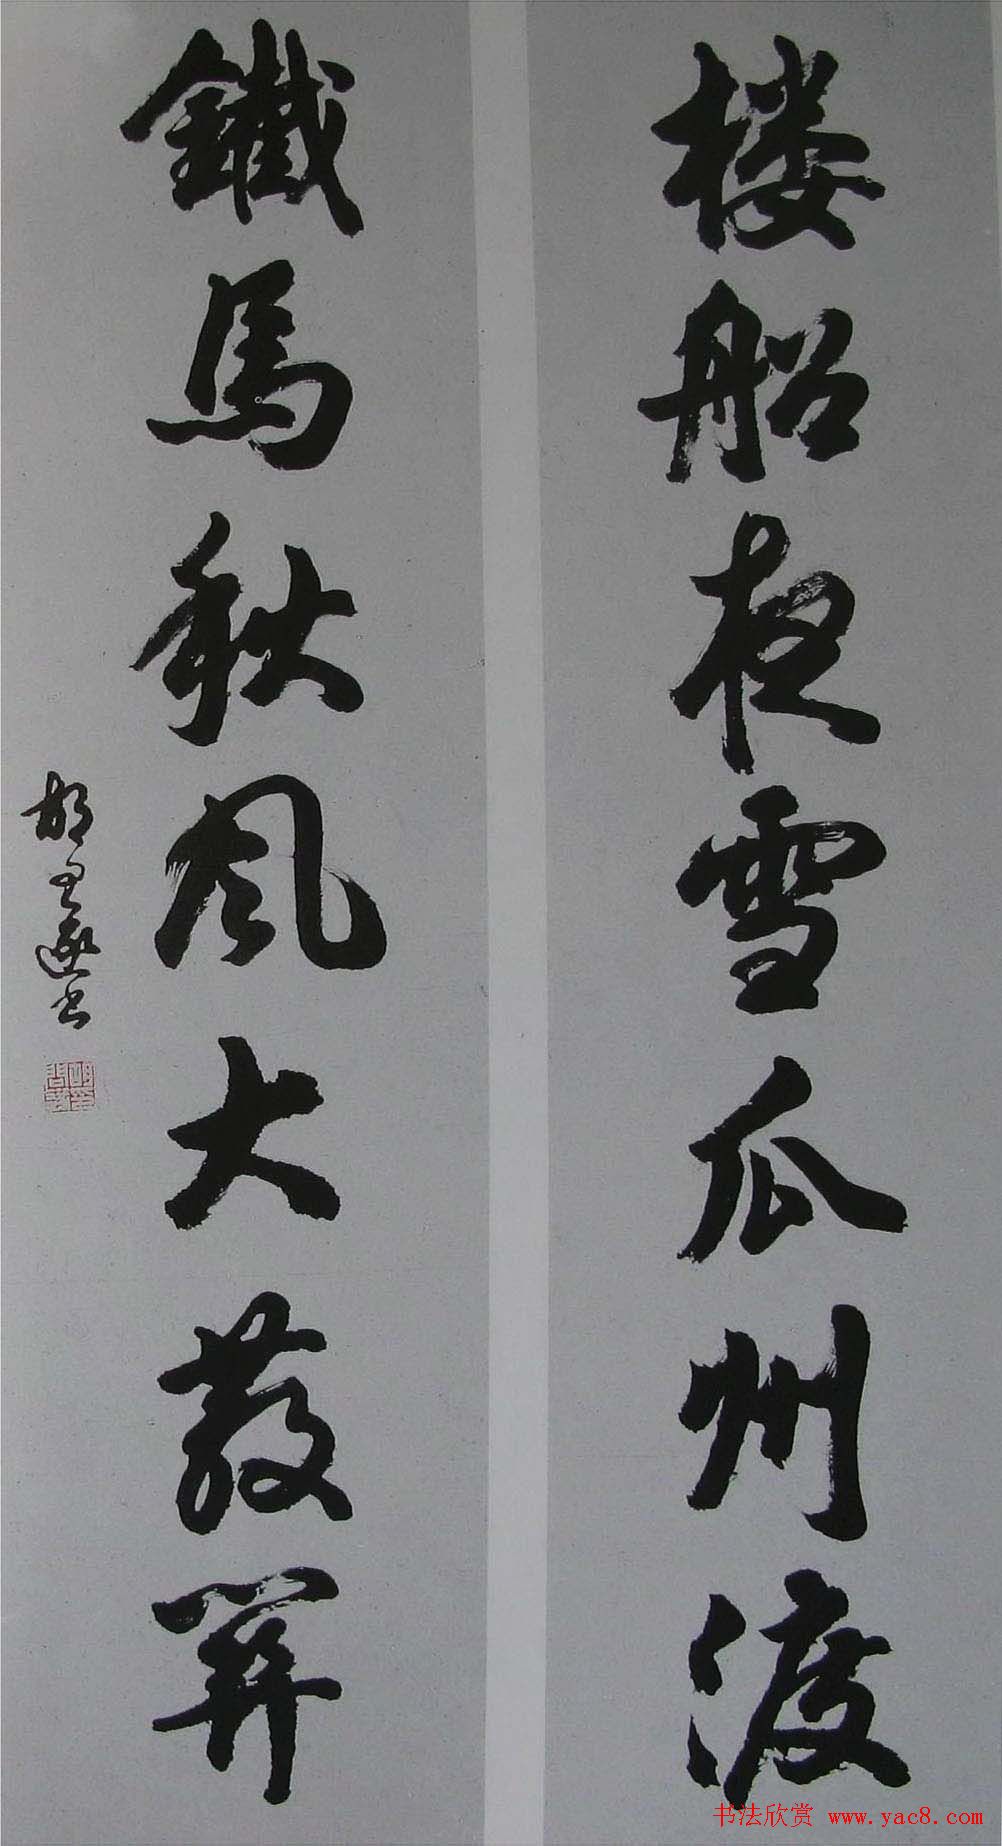 楼船夜雪瓜州渡
鐵馬秋風大散關
胡問遂书
书法欣赏 www.yac8.com